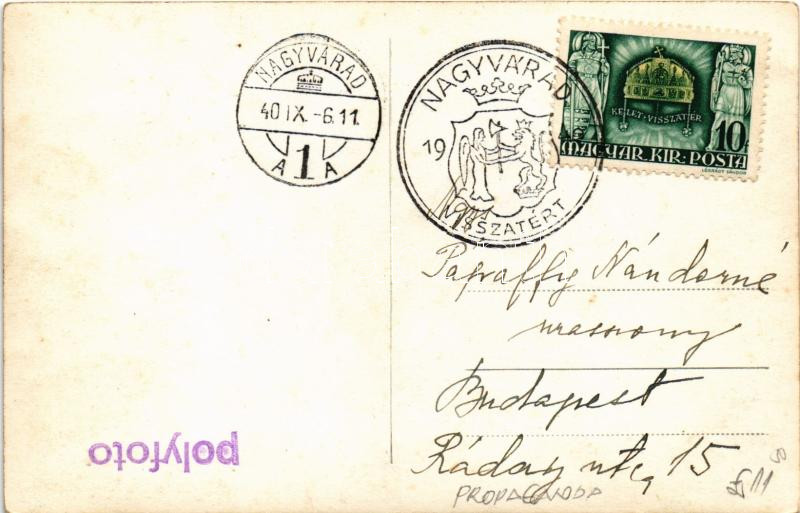 NAGYVÁRAD
40 IX. -6.11
1
A A
NAGYVÁRAD
19
VISSZATÉRT
KELET-VISSZATÉR
10
MAGYAR. KIR. POSTA
LÉGRÁDY SÁNDOR
Nándorné
Budapest
Ráday utca 15
PROPAGANDA
polyfoto